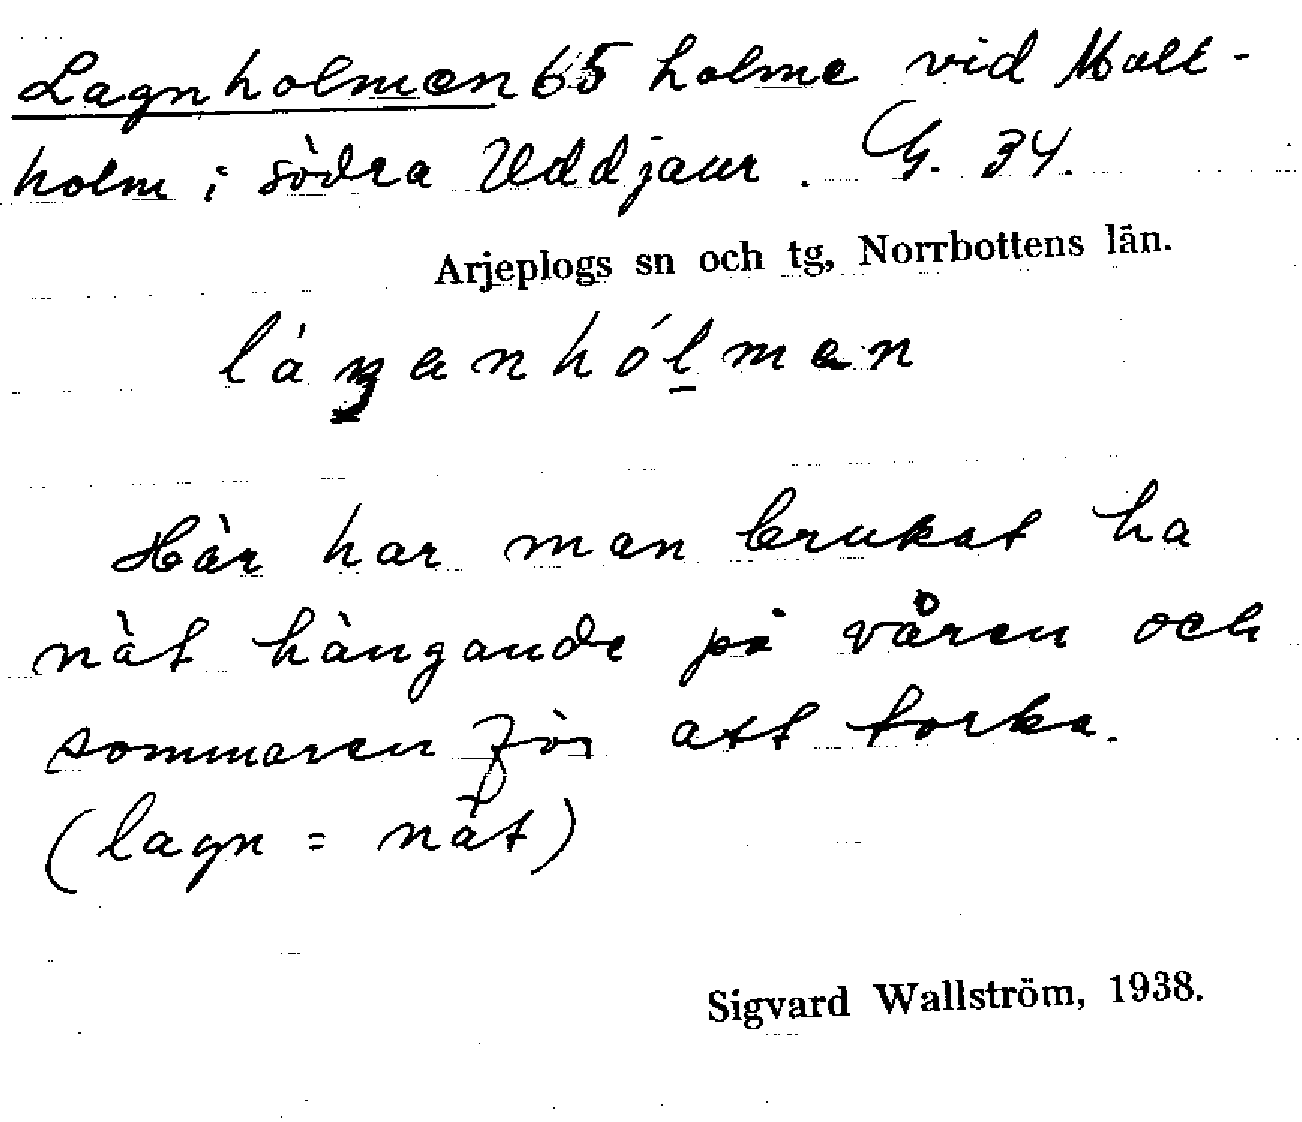 Lagnholmen 65 holme vid Malt-
holm i södra Uddjaur. G. 34.
Arjeplogs sn och tg, Norrbottens län.
Här har man brukat ha
nät hängande på våren och
sommaren för att torka.
(lagn = nät)
Sigvard Wallström, 1938.